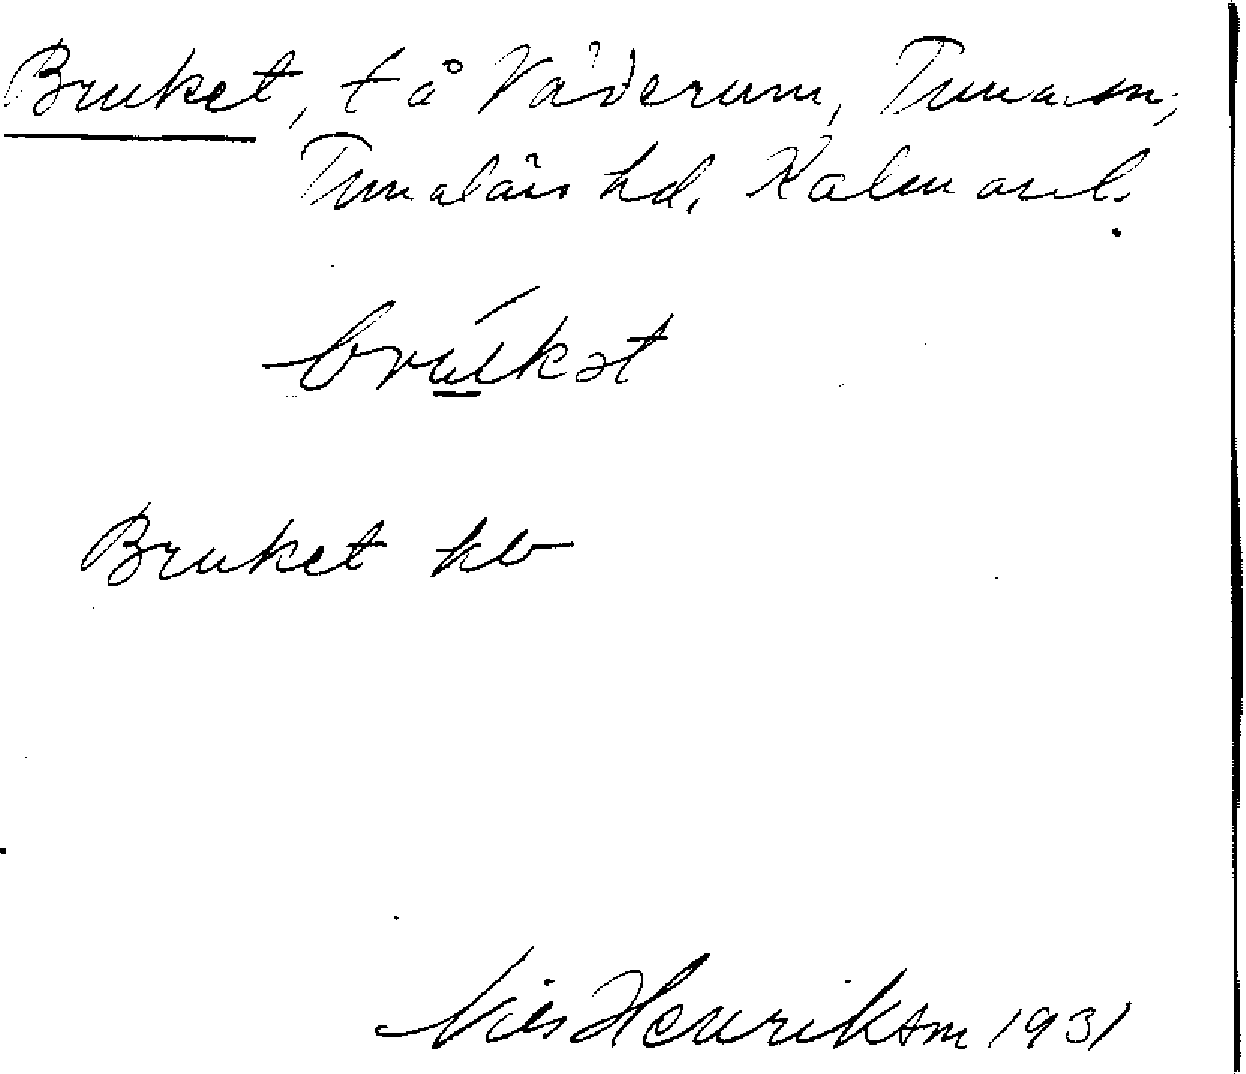 Bruket, t å Väderum, Tuna sn,
Tunaläns hd, Kalmar l.
brúkət
Bruket hb
Nils Henrikson 1931